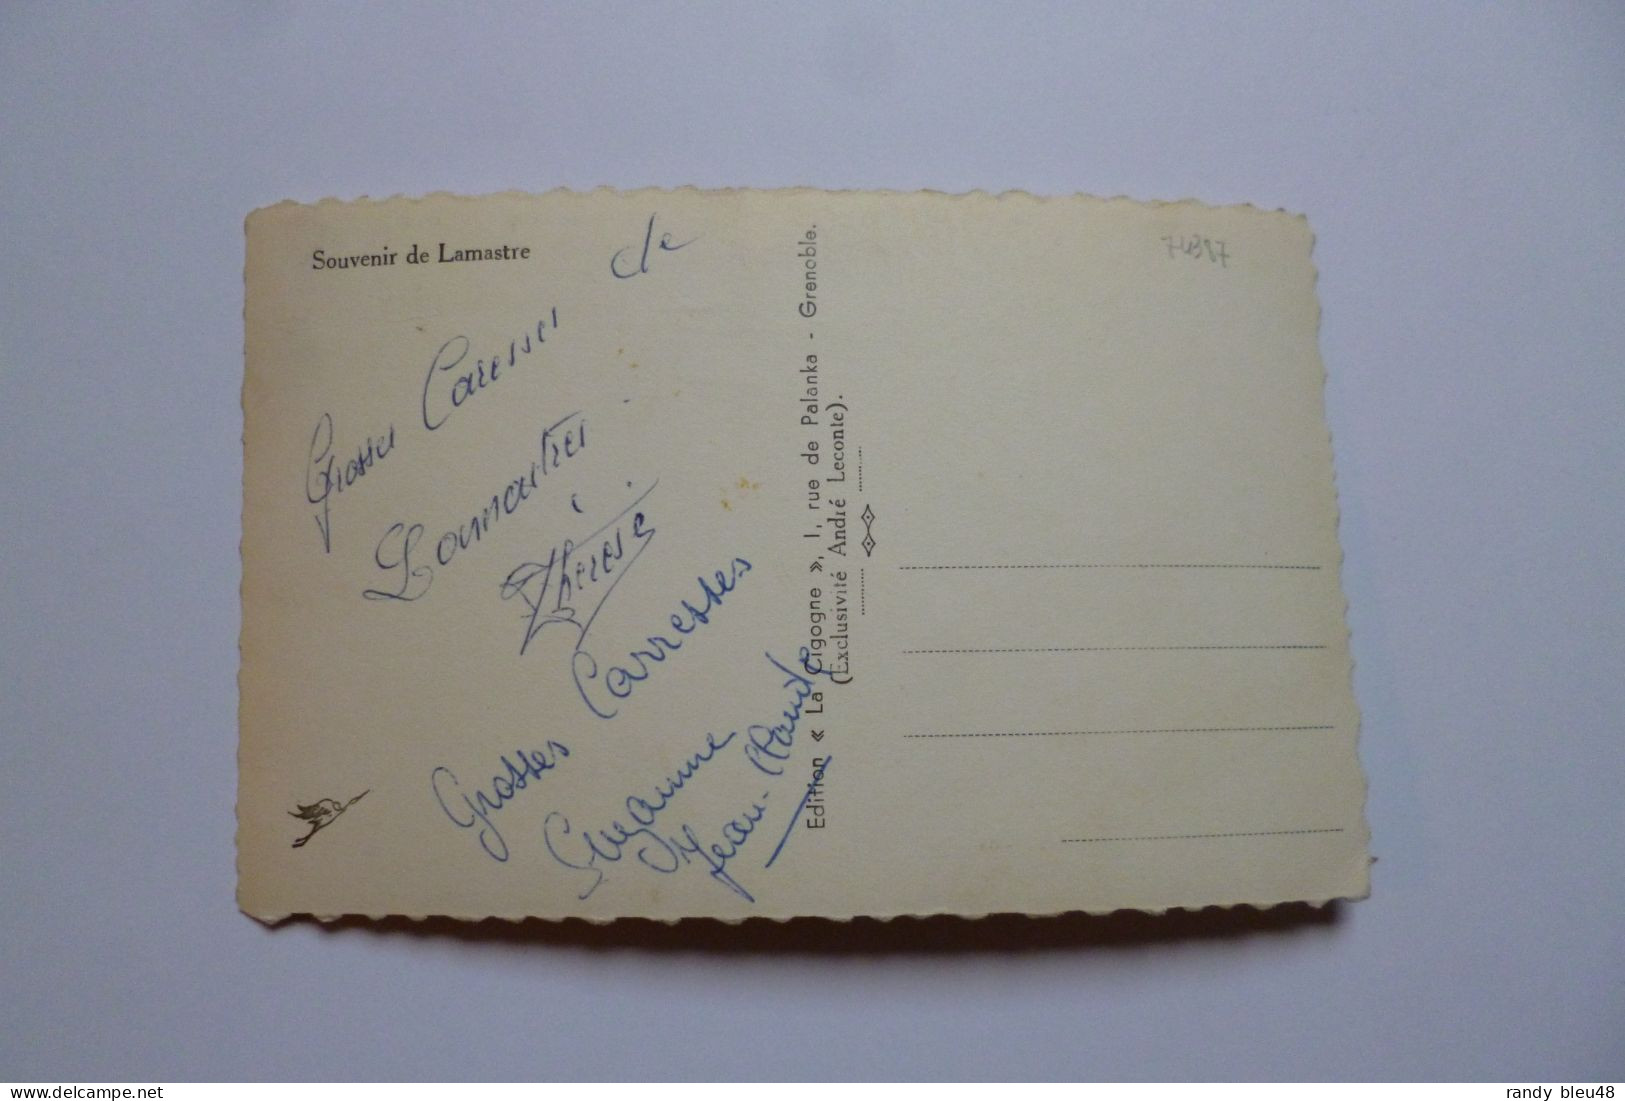 Souvenir de Lamastre
74387
Grosses Caresses de
Lamastre
Thérèse
Grosses Carresses
Suzanne
Jean-Claude
Edition « La Cigogne », 1, rue de Palanka - Grenoble.
(Exclusivité André Leconte).
www.delcampe.net
randy bleu48